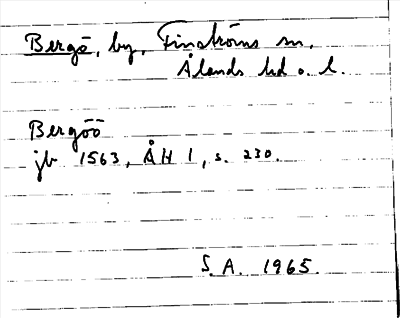 Bergö, by, Finströms sn,
Ålands hd o. l.
Bergöö
jb 1563, ÅH 1, s. 230.
S. A. 1965.